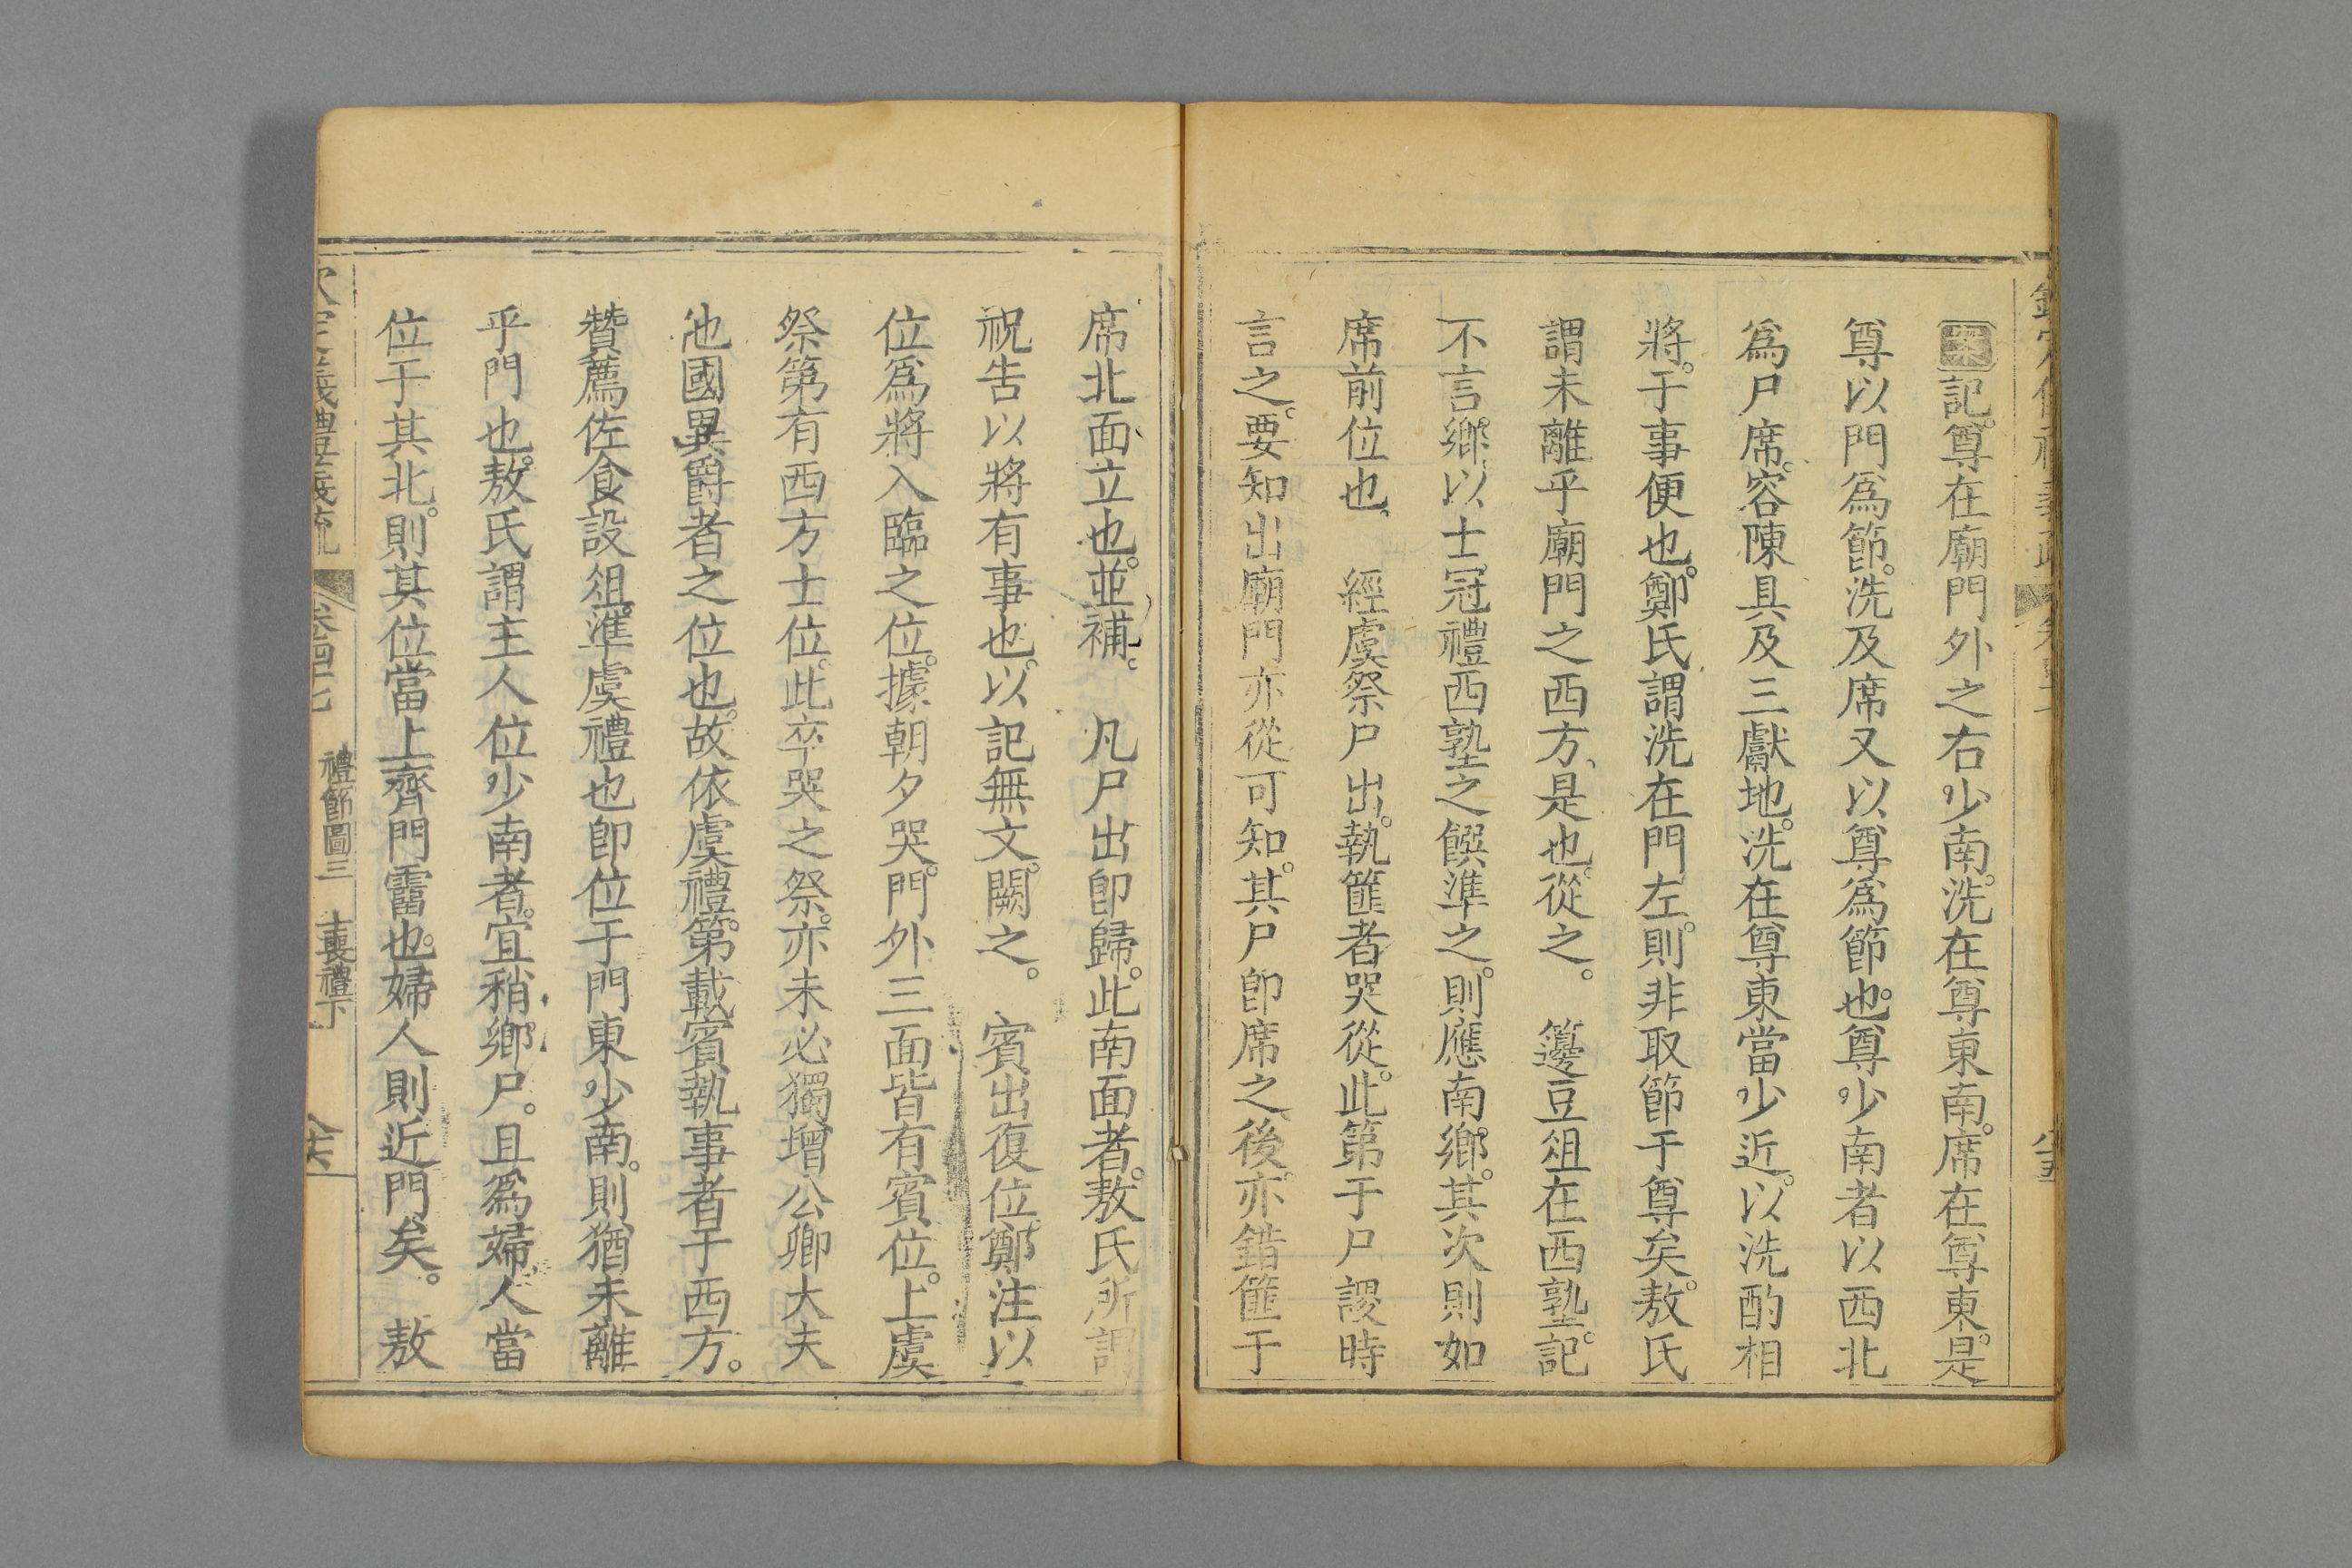 案記。尊在廟門外之右少南。洗在尊東南。席在尊東。是
尊以門爲節。洗及席又以尊爲節也。尊少南者以西北
爲尸席。容陳具及三獻地。洗在尊東當少近。以洗酌相
將。于事便也。鄭氏謂洗在門左。則非取節于尊矣。敖氏
謂未離乎廟門之西方、是也。從之。　籩豆俎在西塾。記
不言鄉。以士冠禮西塾之饌準之。則應南鄉。其次則如
席前位也。　經虞祭尸出。執篚者哭從。此第于尸謖時
言之。要知出廟門亦從可知。其尸卽席之後。亦錯篚于
席北面立也。並補。　凡尸出卽歸。此南面者。敖氏所謂
祝告以將有事也。以記無文。闕之。　賓出復位。鄭注以
位爲將入臨之位。據朝夕哭。門外三面皆有賓位。上虞
祭第有西方士位。此卒哭之祭。亦未必獨增公卿大夫
他國異爵者之位也。故依虞禮。第載賓執事者于西方。
贊薦佐食設俎。準虞禮也卽位于門東少南。則猶未離
乎門也。敖氏謂主人位少南者。宜稍鄉尸。且爲婦人當
位于其北。則其位當上齊門霤也。婦人則近門矣。　敖
卷四十七　禮節圖三　士喪禮下